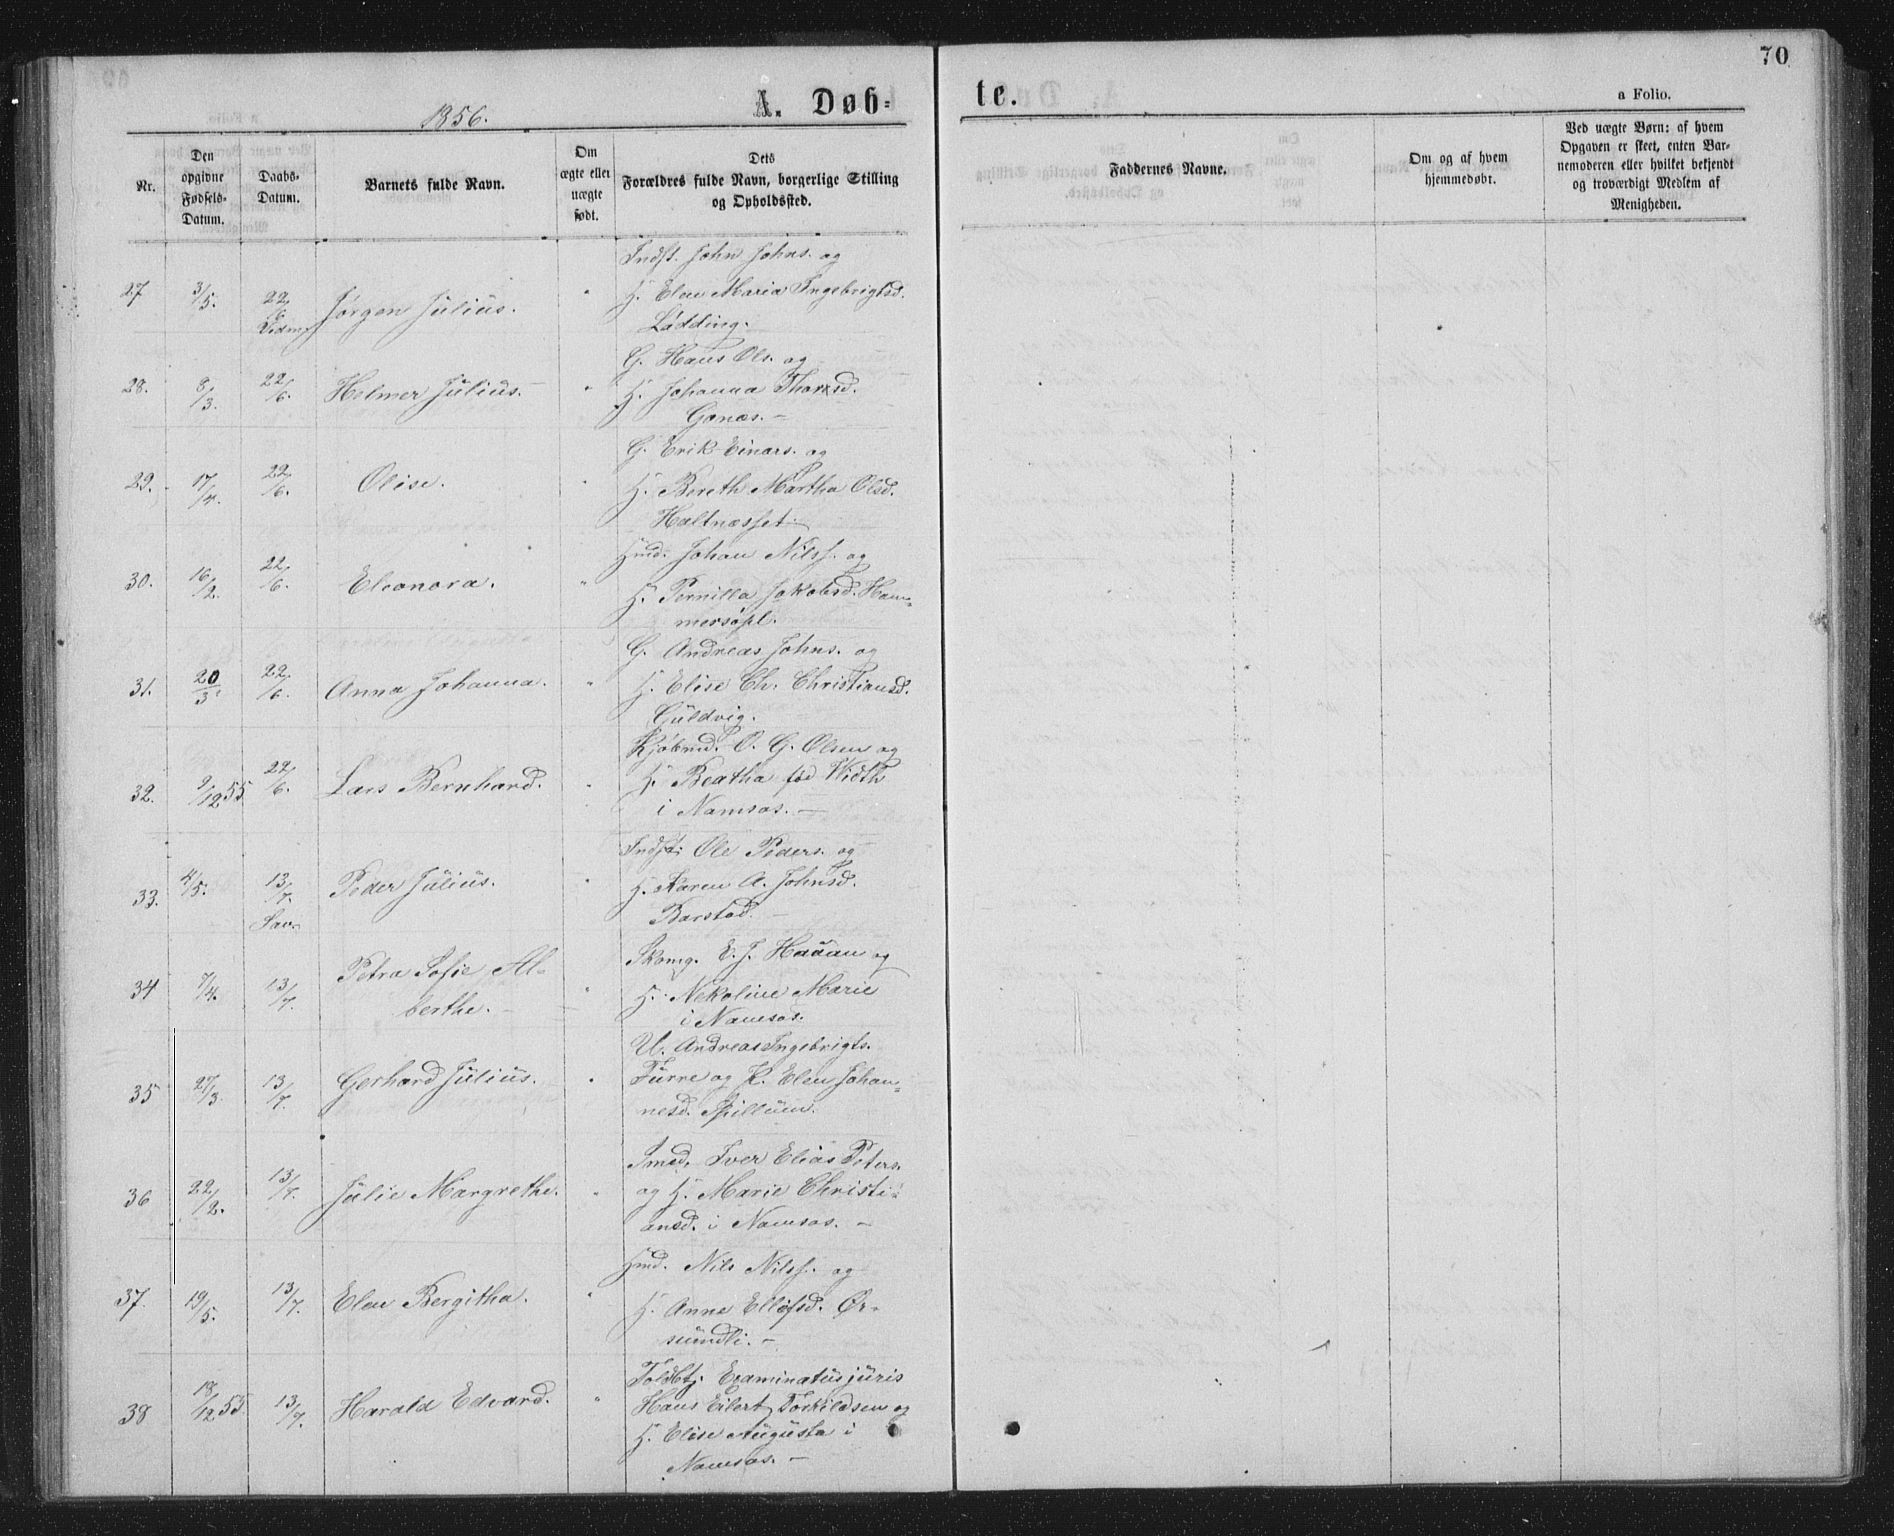 70
1856.
A. Døb-
te.
a Folio.
Nr.
Den
opgivne
Fødsels-
Datum.
Daabs-
Datum.
Barnets fulde Navn.
Om
ægte eller
uægte
født.
Dets
Forældres fulde Navn, borgerlige Stilling
og Opholdssted.
Faddernes Navne.
Om og af hvem
hjemmedøbt.
Ved uægte Børn: af hvem
Opgaven er skeet, enten Bar-
nemoderen eller hvilket bekjendt
og troværdigt Medlem af
Menigheden.
Indst. John Johns. og
27 3/5. 22/6 Jørgen Julius. " H. Elen Maria Ingebrigtsd.
Vidm.
Lødding.
G. Hans Ols. og
28. 8/3. 22/6. Helmer Julius. " H. Johanna
Gansæs.
G. Erik Einars. og
29. 17/4. 22/6. Olise. " H. Bereth Martha Olsd.
Haltnæsset.
Hmd. Johan Nilss. og
30. 16/2. 22/6. Eleonora. " H. Pernilla Jakobsd. Ham-
mersøpl.
G. Andreas Johns. og
31. 20/3. 22/6. Anna Johanna. " H. Elise Ch. Christiansd.
Guldvig.
Kjøbmd. O. G. Olsen og
32. 9/12 55 22/6. Lars Bernhard. " H. Beatha fød Width
i Namsos.
Indst. Ole Peders. og
33. 4/5. 13/7. Peder Julius. " H. Karen A. Johnsd.
Sav.
Barstad.
Skomg. E. J. Hauan og
34 7/4. 13/7. Petra Sofie Al-
berthe. " H. Nekoline Marie
i Namsos.
U. Andreas Ingebrigts.
35 27/3. 13/7. Gerhard Julius. " Furre og P. Elen Johan-
nesd. Spillum.
Smed. Iver Elias Peters.
36 22/2. 13/7. Julie Margrethe. " og H. Marie Christi-
ansd. i Namsos.
Hmd. Nils Nilss. og
37. 19/5. 13/7. Elen Bergitha. " H. Anne Ellefsd. Ør-
sundli.
Toldbtj. Examinatus juris
38 18/12 55. 13/7. Harald Edvard. " Hans Eilert Torkildsen og
H. Elise Augusta i
Namsos.